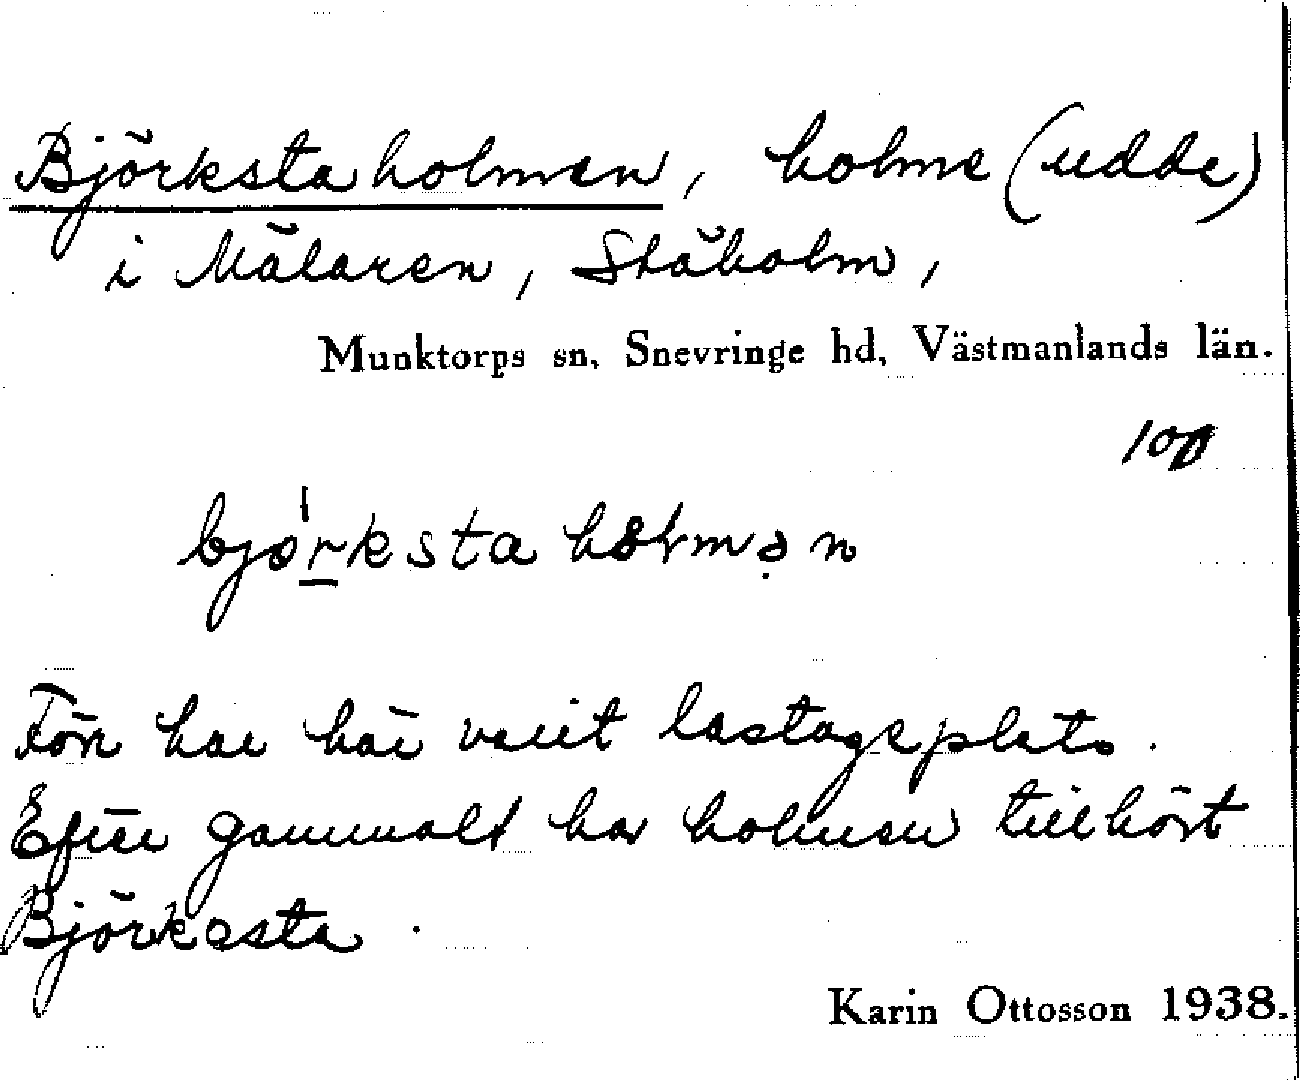 Björkstaholmen, holme (udde)
i Mälaren, Stäholm,
Munktorps sn, Snevringe hd, Västmanlands län.
björksta holmən
Förr har här varit lastageplats.
Efter gammalt har holmen tillhört
Björksta.
Karin Ottosson 1938.